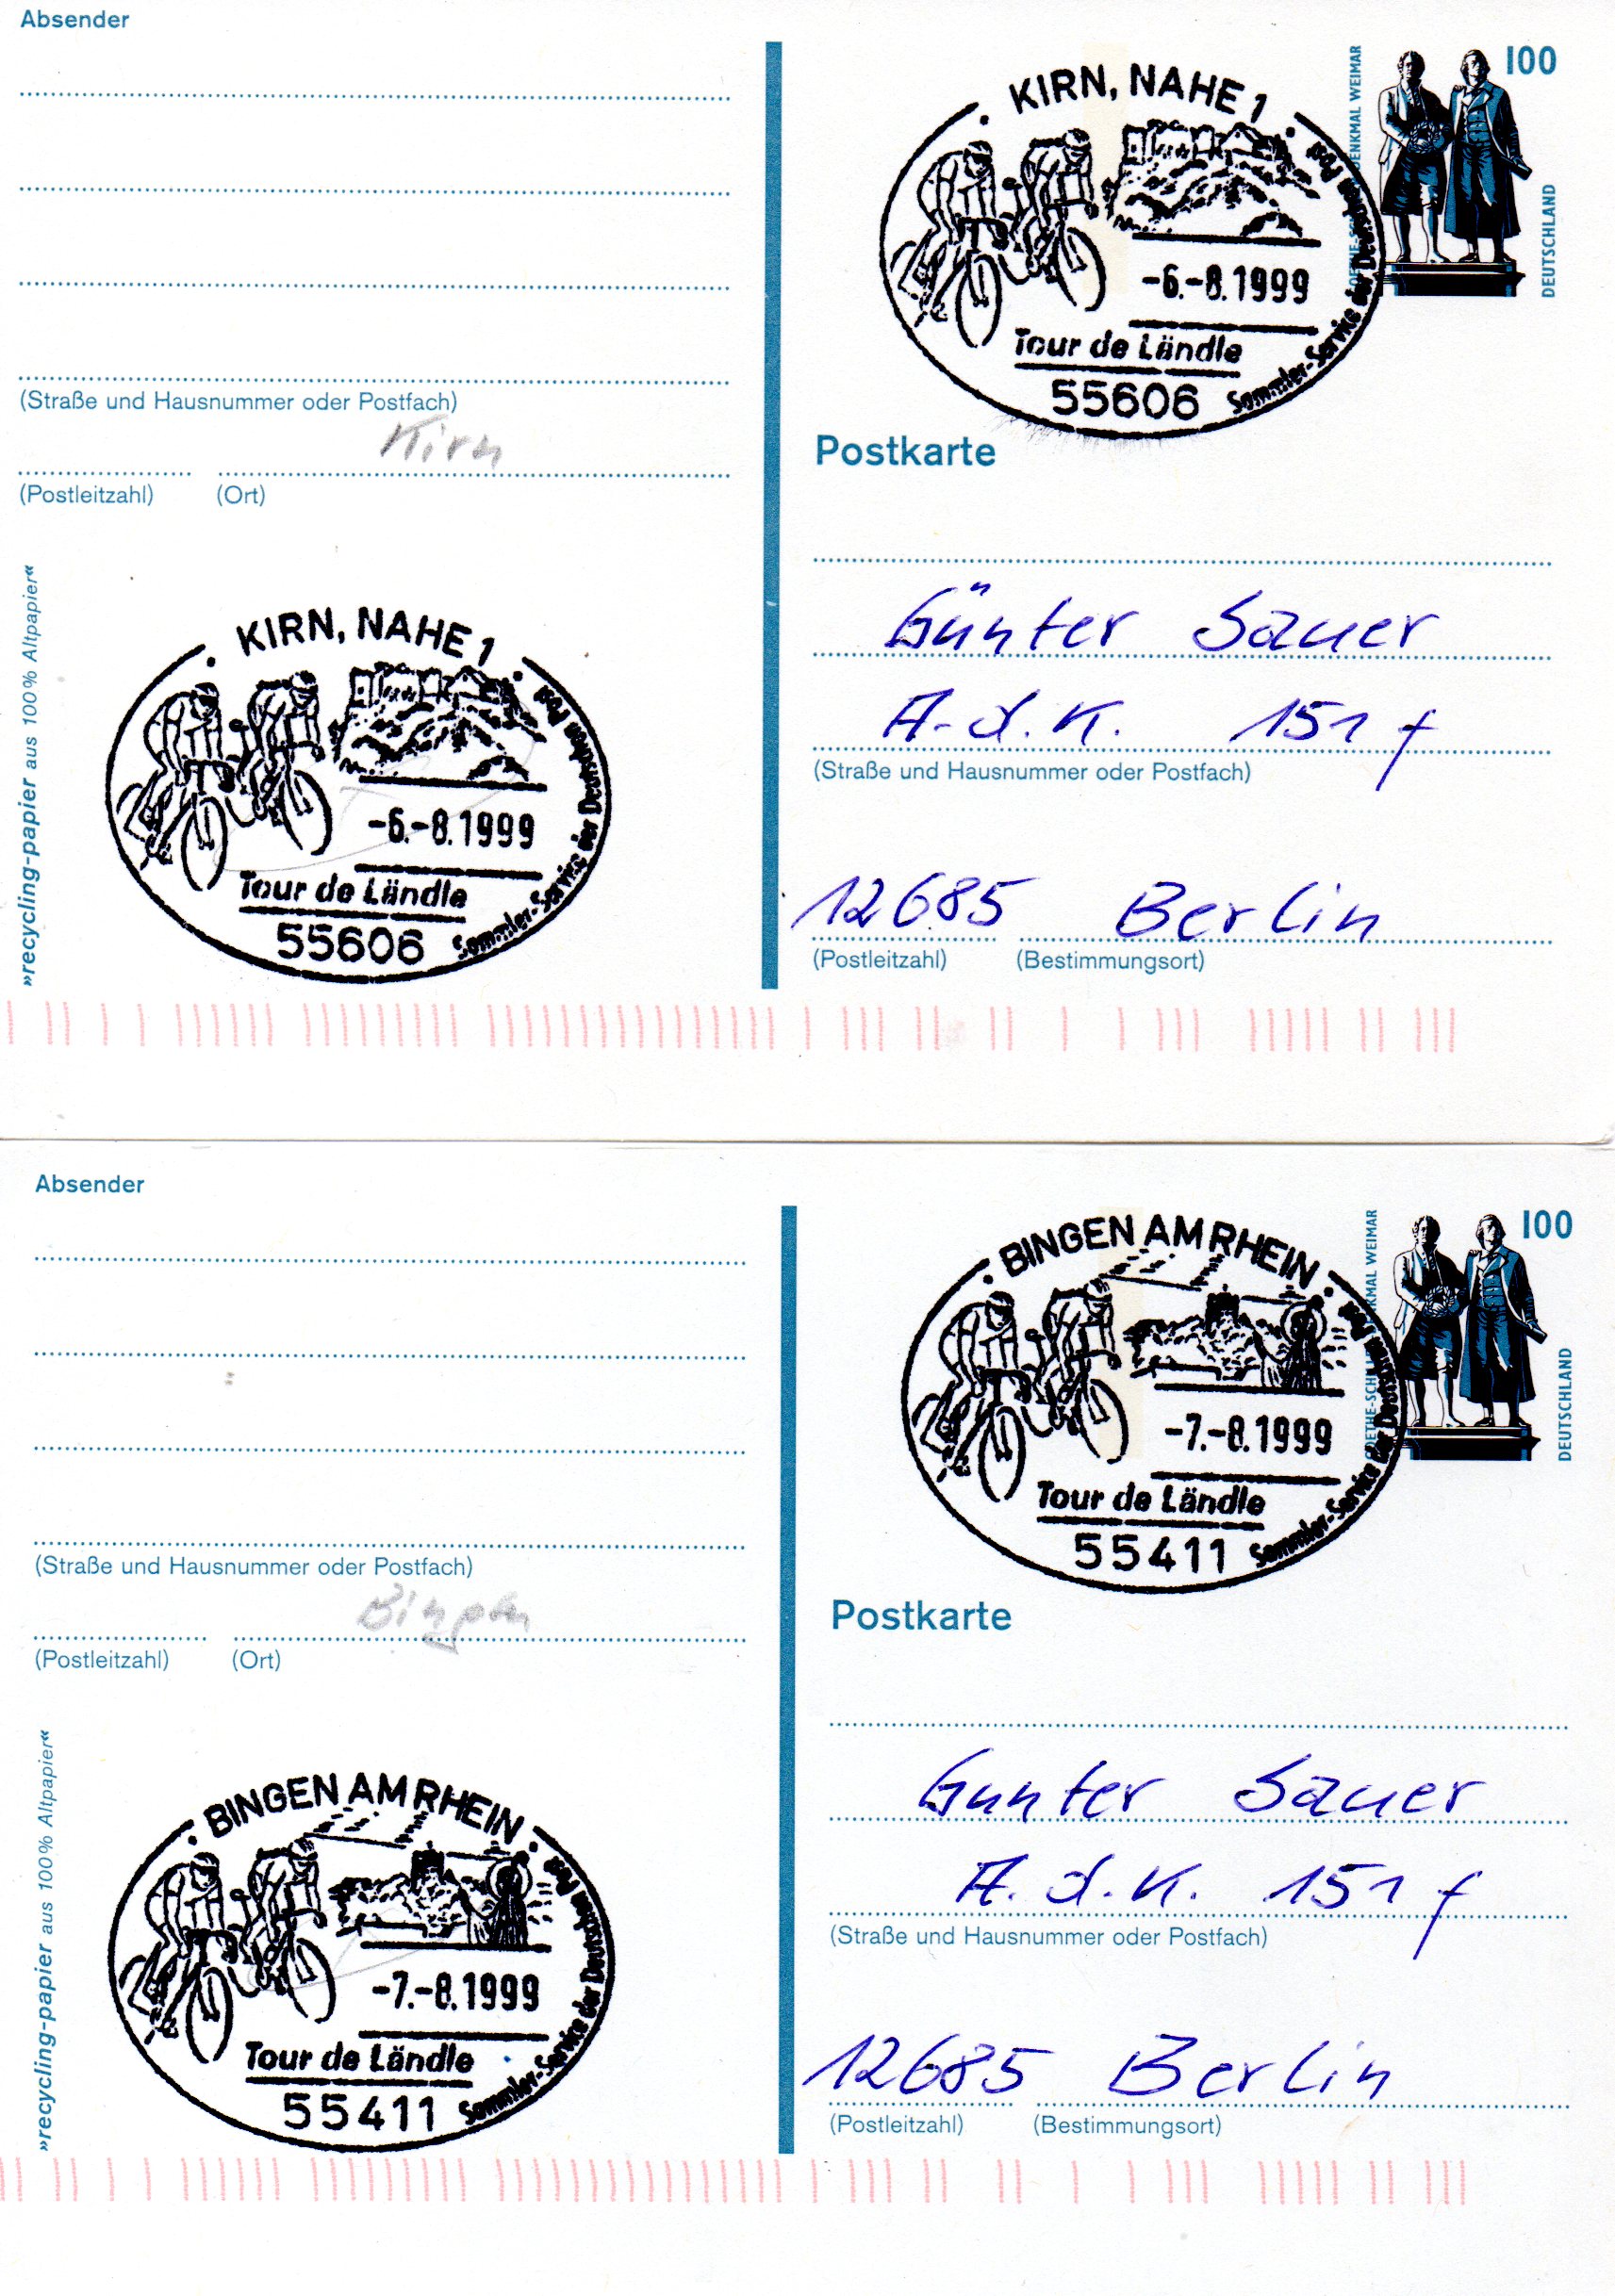 Absender
(Straße und Hausnummer oder Postfach)
Kirn
(Postleitzahl) (Ort)
»recycling-papier aus 100% Altpapier«
KIRN, NAHE 1
-6.-8.1999
Tour de Ländle
55606
Sammler-Service der Deutschen Post
KIRN, NAHE 1
-6.-8.1999
Tour de Ländle
55606
Sammler-Service der Deutschen Post
100
DENKMAL WEIMAR
DEUTSCHLAND
Postkarte
Günter Sauer
A-d.K. 151 f
(Straße und Hausnummer oder Postfach)
12685 Berlin
(Postleitzahl) (Bestimmungsort)
Absender
(Straße und Hausnummer oder Postfach)
Bingen
(Postleitzahl) (Ort)
»recycling-papier aus 100% Altpapier«
BINGEN AM RHEIN
-7.-8.1999
Tour de Ländle
55411
Sammler-Service der Deutschen Post
BINGEN AM RHEIN
-7.-8.1999
Tour de Ländle
55411
Sammler-Service der Deutschen Post
100
WEIMAR
DEUTSCHLAND
Postkarte
Gunter Sauer
A.d.K. 151 f
(Straße und Hausnummer oder Postfach)
12685 Berlin
(Postleitzahl) (Bestimmungsort)